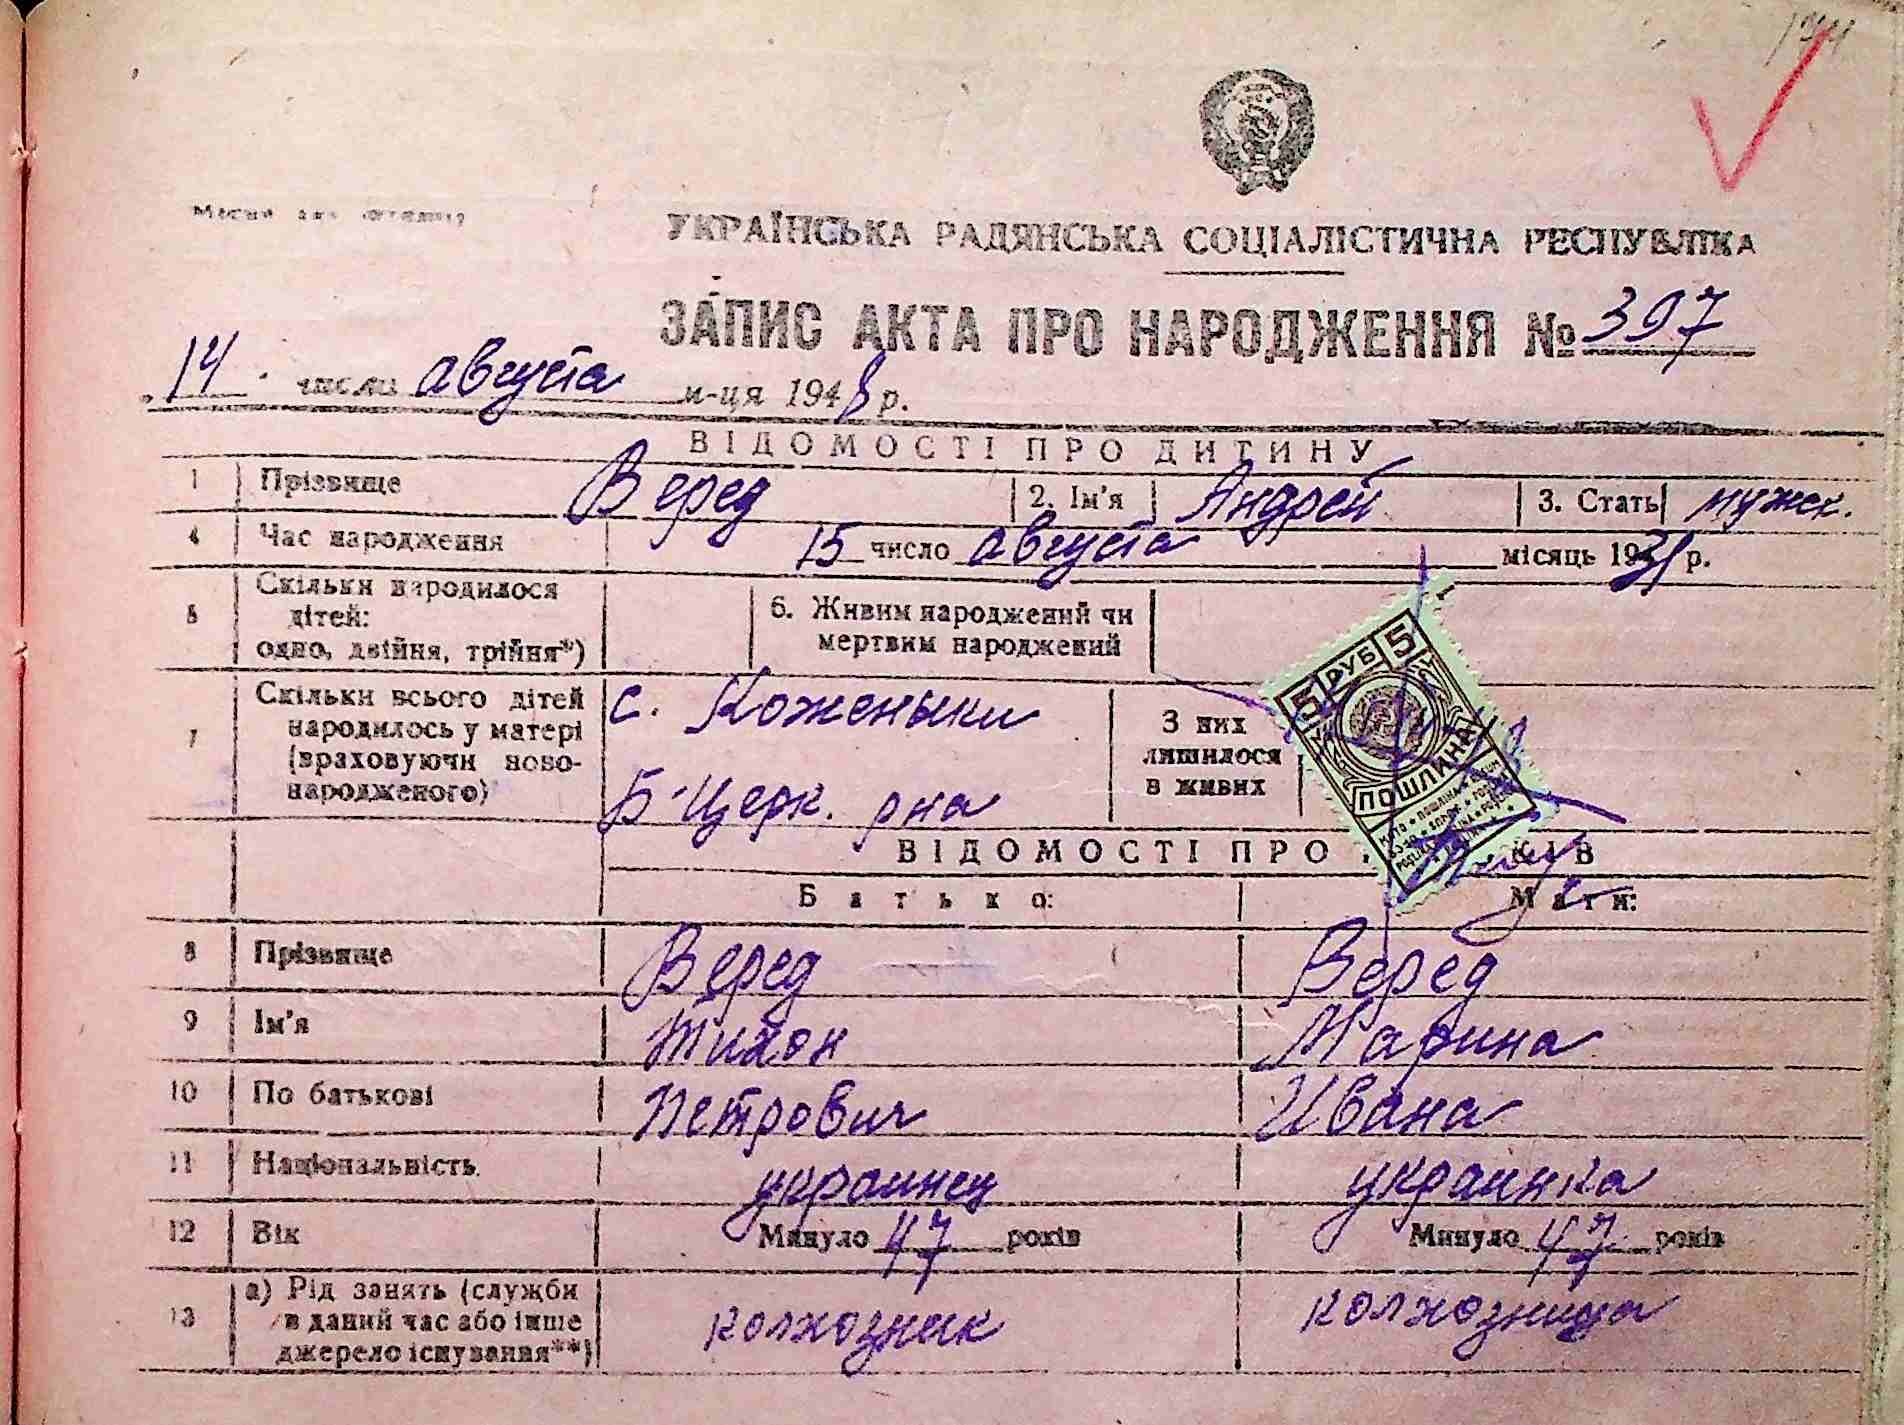 УКРАЇНСЬКА РАДЯНСЬКА СОЦІАЛІСТИЧНА РЕСПУБЛІКА
ЗАПИС АКТА ПРО НАРОДЖЕННЯ № 397
14 число августа м-ця 1948 р.
ВІДОМОСТІ ПРО ДИТИНУ
1 Прізвище Веред 2. Ім'я Андрей 3. Стать мужск.
4 Час народження 15 число августа місяць 1931 р.
5 Скільки народилося дітей: одно, двійня, трійня*) 6. Живим народжений чи мертвим народжений
7 Скільки всього дітей народилось у матері (враховуючи ново-народженого) с. Коженыки Б-Церк. рна З них лишилося в живих
5 РУБ 5
ПОШЛИНА
ВІДОМОСТІ ПРО КІВ
Батько: Мати:
8 Прізвище Веред Веред
9 Ім'я Тихон Марина
10 По батькові Петрович Ивана
11 Національність украинец украинка
12 Вік Минуло 47 років Минуло 47 років
13 а) Рід занять (служби в даний час або інше джерело існування**) колхозник колхозница